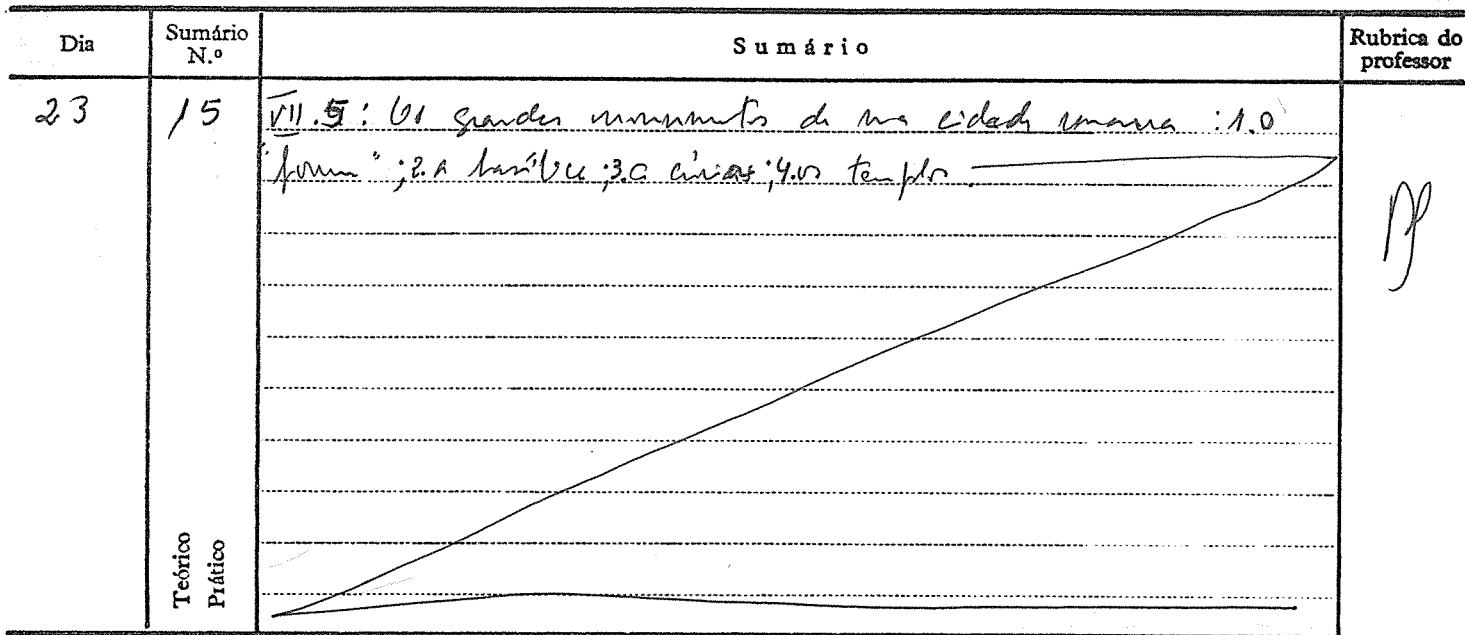 Dia
Sumário N.º
Sumário
Rubrica do professor
23
15
VII.5: Os grandes monumentos de uma cidade romana: 1.o
"forum"; 2.a basílica; 3.a cúria; 4.os templos.
Teórico
Prático